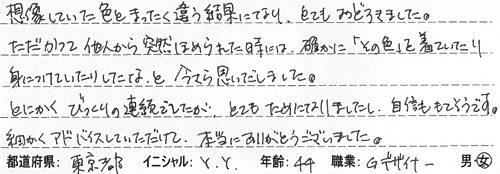 想像していた色とまったく違う結果になり、とてもおどろきました。
ただかつて他人から突然ほめられた時には、確かに「その色」を着ていたり
身につけていたりしたな、と今さら思いだしました。
とにかくびっくりの連続でしたが、とてもためになりましたし、自信ももてそうです。
細かくアドバイスしていただけて、本当にありがとうございました。
都道府県: 東京都 イニシャル: Y.Y. 年齢: 44 職業: Gデザイナー 男・女